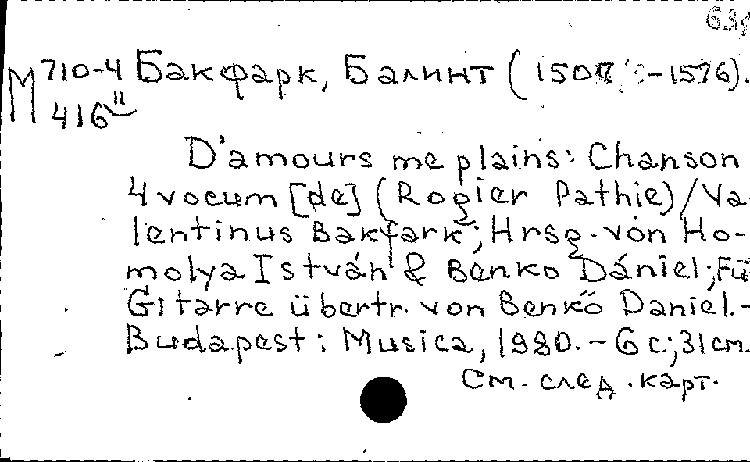 M 710-4 Бакфарк, Балинт (1507 -1576).
416
D'amours me plains: Chanson
4 vocum [de] (Rogier Pathie)/Va-
lentinus Bakfark; Hrsg. von Ho-
molya István & Benko Dániel; Fü
Gitarre übertr. von Benkö Daniel.-
Budapest: Musica, 1980.-6 с.; 31 см.
См. след. карт.